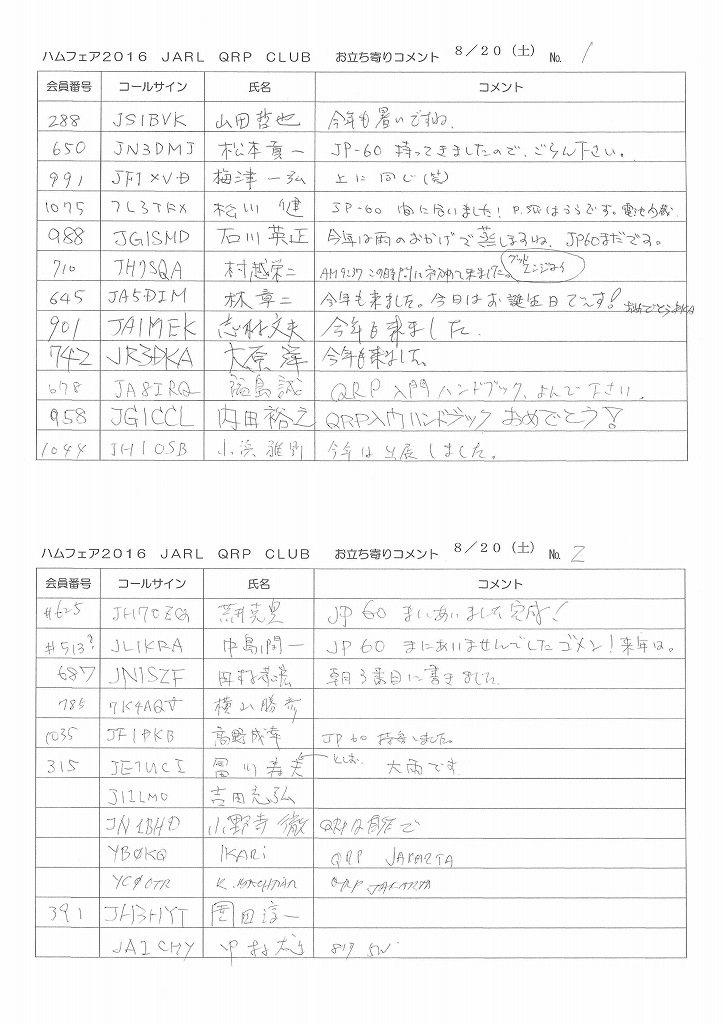 ハムフェア2016 JARL QRP CLUB お立ち寄りコメント 8/20 (土) No. 1
会員番号 コールサイン 氏名 コメント
288 JS1BVK 山田哲也 今年も暑いですね.
650 JN3DMJ 松本貢一 JP-60 持ってきましたので、ごらん下さい。
991 JF1XVB 梅津一弘 上に同じ(笑)
1075 7L3TRX 松川 健 JP-60 間に合いました!
988 JG1SMD 石川英正 今年は雨のおかげで蒸しますね、JP60まだです。
710 JH7SQA 村越栄二
645 JA5DIM 林章二 今年も来ました。今日はお誕生日でーす! おめでとう
901 JA1MEK 志村文夫 今年も来ました.
742 JR3DKA 大原 洋 今年も来ました。
678 JA8IRQ 福島誠 QRP入門ハンドブック、よんで下さい.
958 JG1CCL 内田裕之 QRP入門ハンドブック おめでとう!
1044 JH1OSB 小浜雅則 今年は出展しました。
ハムフェア2016 JARL QRP CLUB お立ち寄りコメント 8/20 (土) No. 2
会員番号 コールサイン 氏名 コメント
#625 JH7OZQ JP 60 まにあいました 完成!
#513? JL1KRA 中島潤一 JP 60 まにあいませんでした ゴメン! 来年は。
687 JN1SZF 朝3番目に書きました
785 7K4AQV 横山勝彦
1035 JF1PKB 高野成幸 JP 60 持参しました。
315 JE1UCI 冨川寿夫 ←としお. 大雨です
JI1LMO 吉田克弘
JN1BHD 小野寺 徹 QRPは自作で
YB0KQ IKARI QRP JAKARTA
YC0OTR QRP JAKARTA
391 JH3HYT 岡田淳一
JA1CHY 817 5W